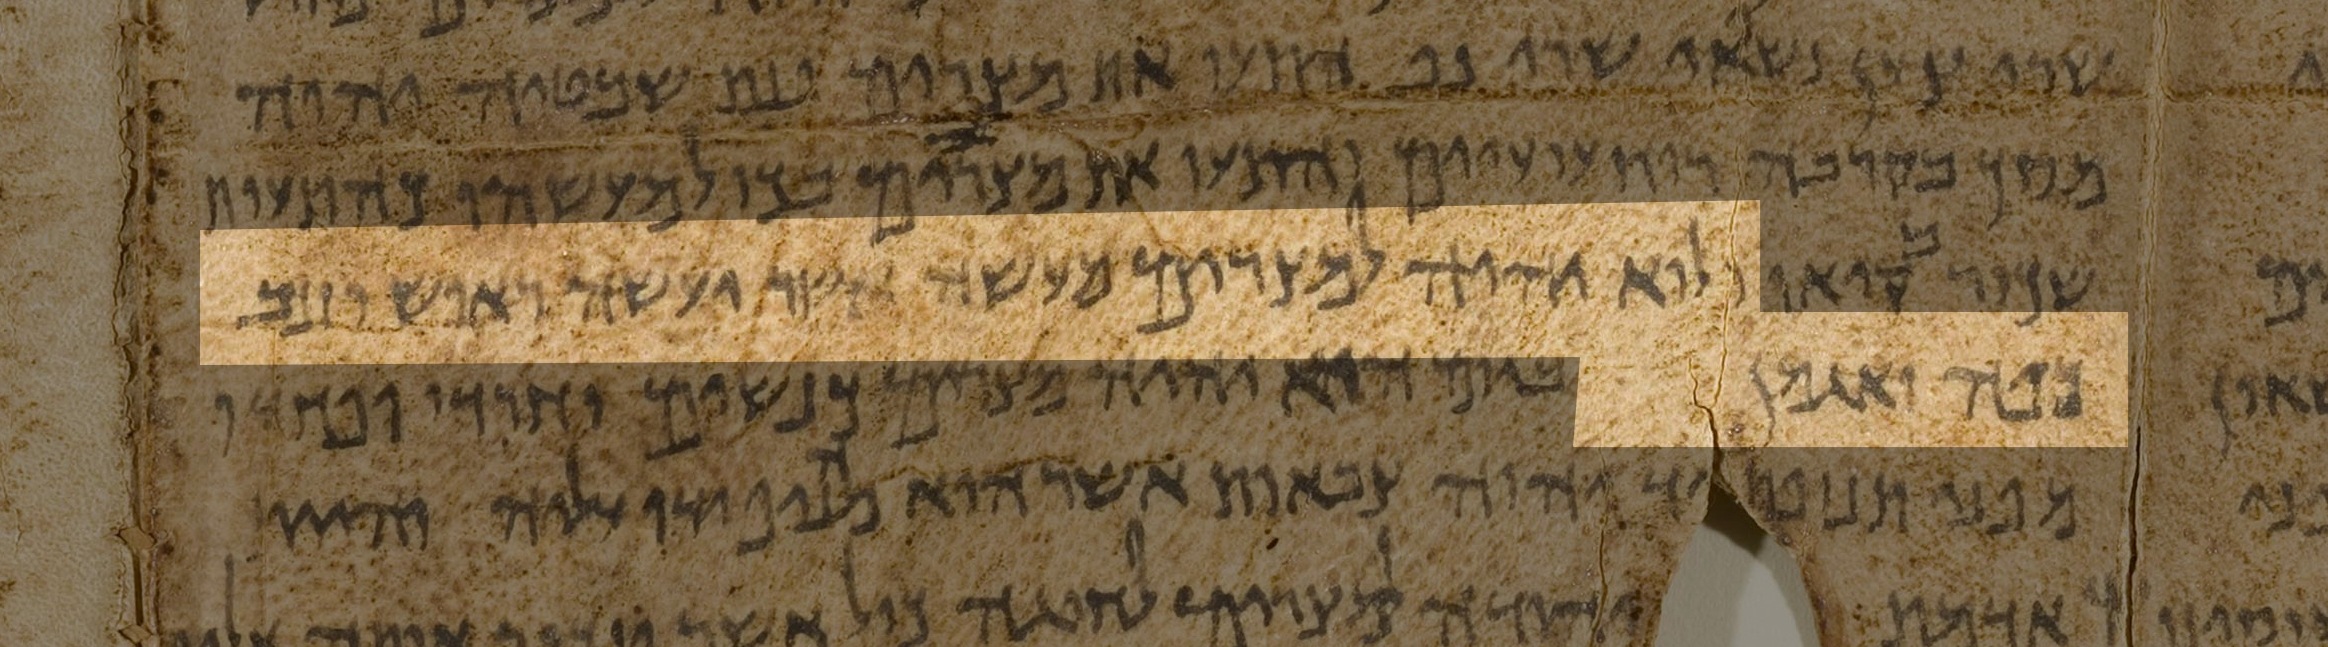 שרי צען נשאו שרי נף התעו את מצרים פנת שבטיה יהוה
מסך בקרבה רוח עועיים והתעו את מצרים בכול מעשהו כהתעות
שכור בקיאו ולוא יהיה למצרים מעשה אשר יעשה ראוש וזנב
כפה ואגמן ביום ההוא יהיה מצרים כנשים וחרדו ופחדו
מפני תנופת יד יהוה צבאות אשר הוא מניף ידו עליה והיתה
אדמת יהודה למצרים לחוגה כול אשר